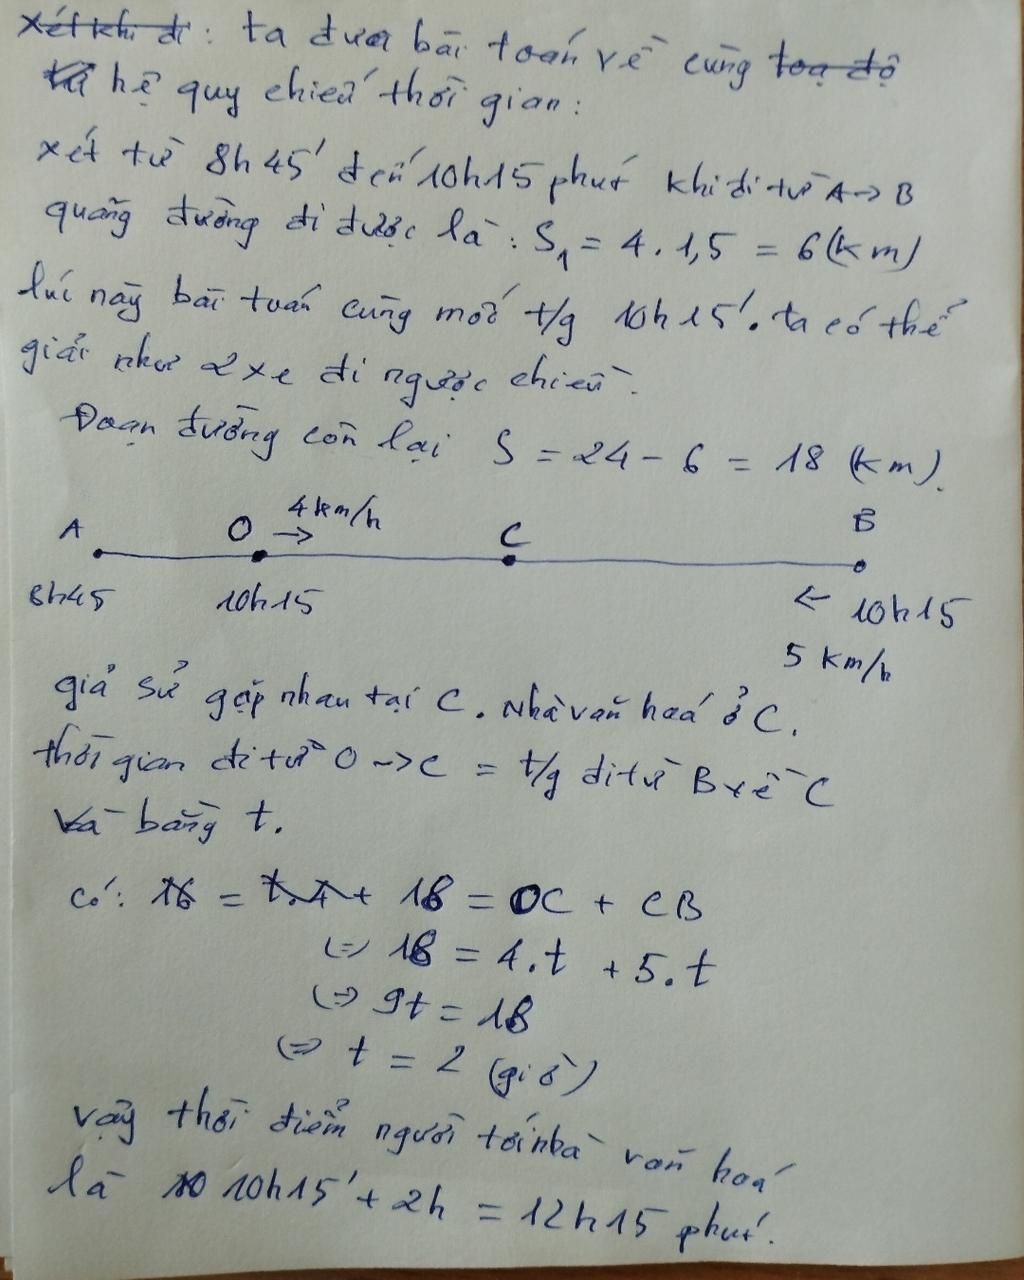 Xét khi đi: ta đưa bài toán về cùng toạ độ
hệ quy chiếu thời gian:
xét từ 8h45' đến 10h15 phút khi đi từ A→B
quãng đường đi được là: S₁ = 4.1,5 = 6(km)
lúc này bài toán cùng mốc t/g 10h15'. ta có thể
giải như 2 xe đi ngược chiều.
Đoạn đường còn lại S = 24 - 6 = 18 (km).
A O 4km/h → C B
8h45 10h15 ← 10h15
5 km/h
giả sử gặp nhau tại C. Nhà văn hoá ở C.
thời gian đi từ O→C = t/g đi từ B về C
và bằng t.
có: 16 = t.4 + 18 = OC + CB
(=) 18 = 4.t + 5.t
(=) 9t = 18
(=) t = 2 (giờ)
vậy thời điểm người tới nhà văn hoá
là 10 10h15' + 2h = 12h15 phút.